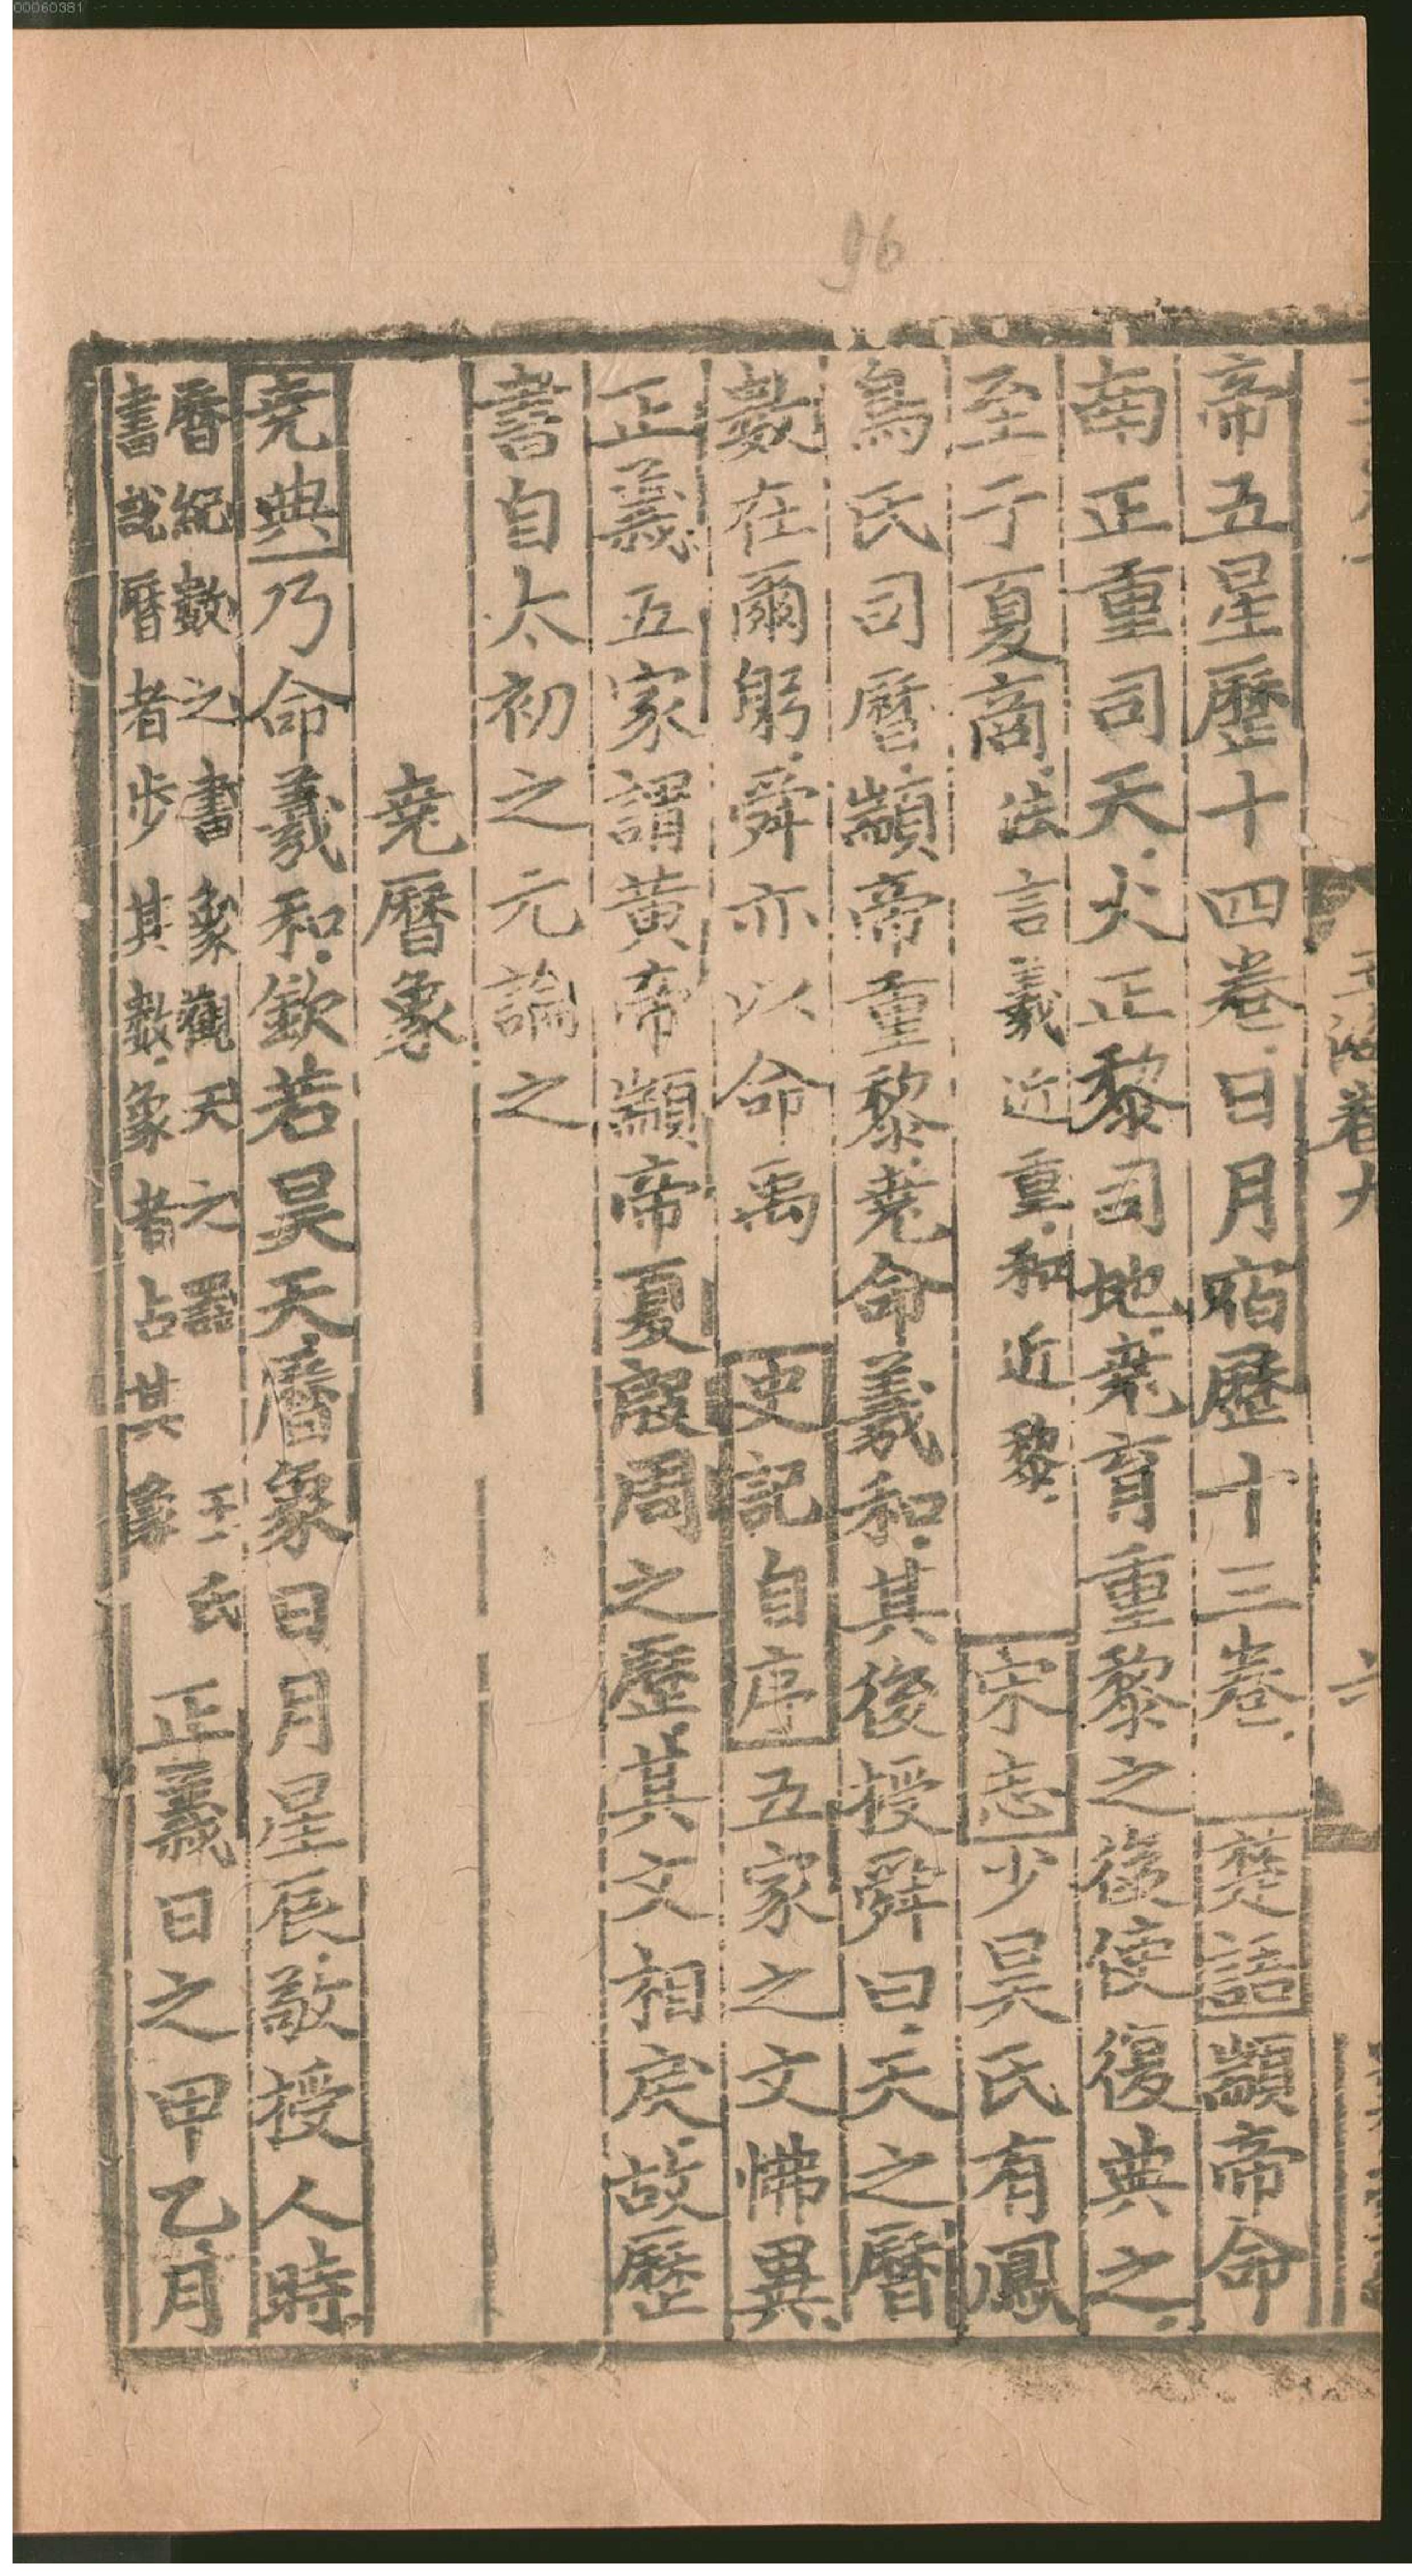 00060381
96
玉海卷九
六
帝五星歷十四卷日月宿歷十三卷 楚語顓帝命
南正重司天火正黎司地堯育重黎之後使復典之
至于夏商法言羲近重和近黎 宋志少昊氏有鳳
鳥氏司曆顓帝重黎堯命羲和其後授舜曰天之曆
數在爾躬舜亦以命禹 史記自序五家之文怫異
正義五家謂黃帝顓帝夏殷周之歷其文相戾故歷
書自太初之元論之
堯曆象
堯典乃命羲和欽若昊天曆象日月星辰敬授人時
曆紀數之書象觀天之器 王氏
書說曆者步其數象者占其象
正義日之甲乙月